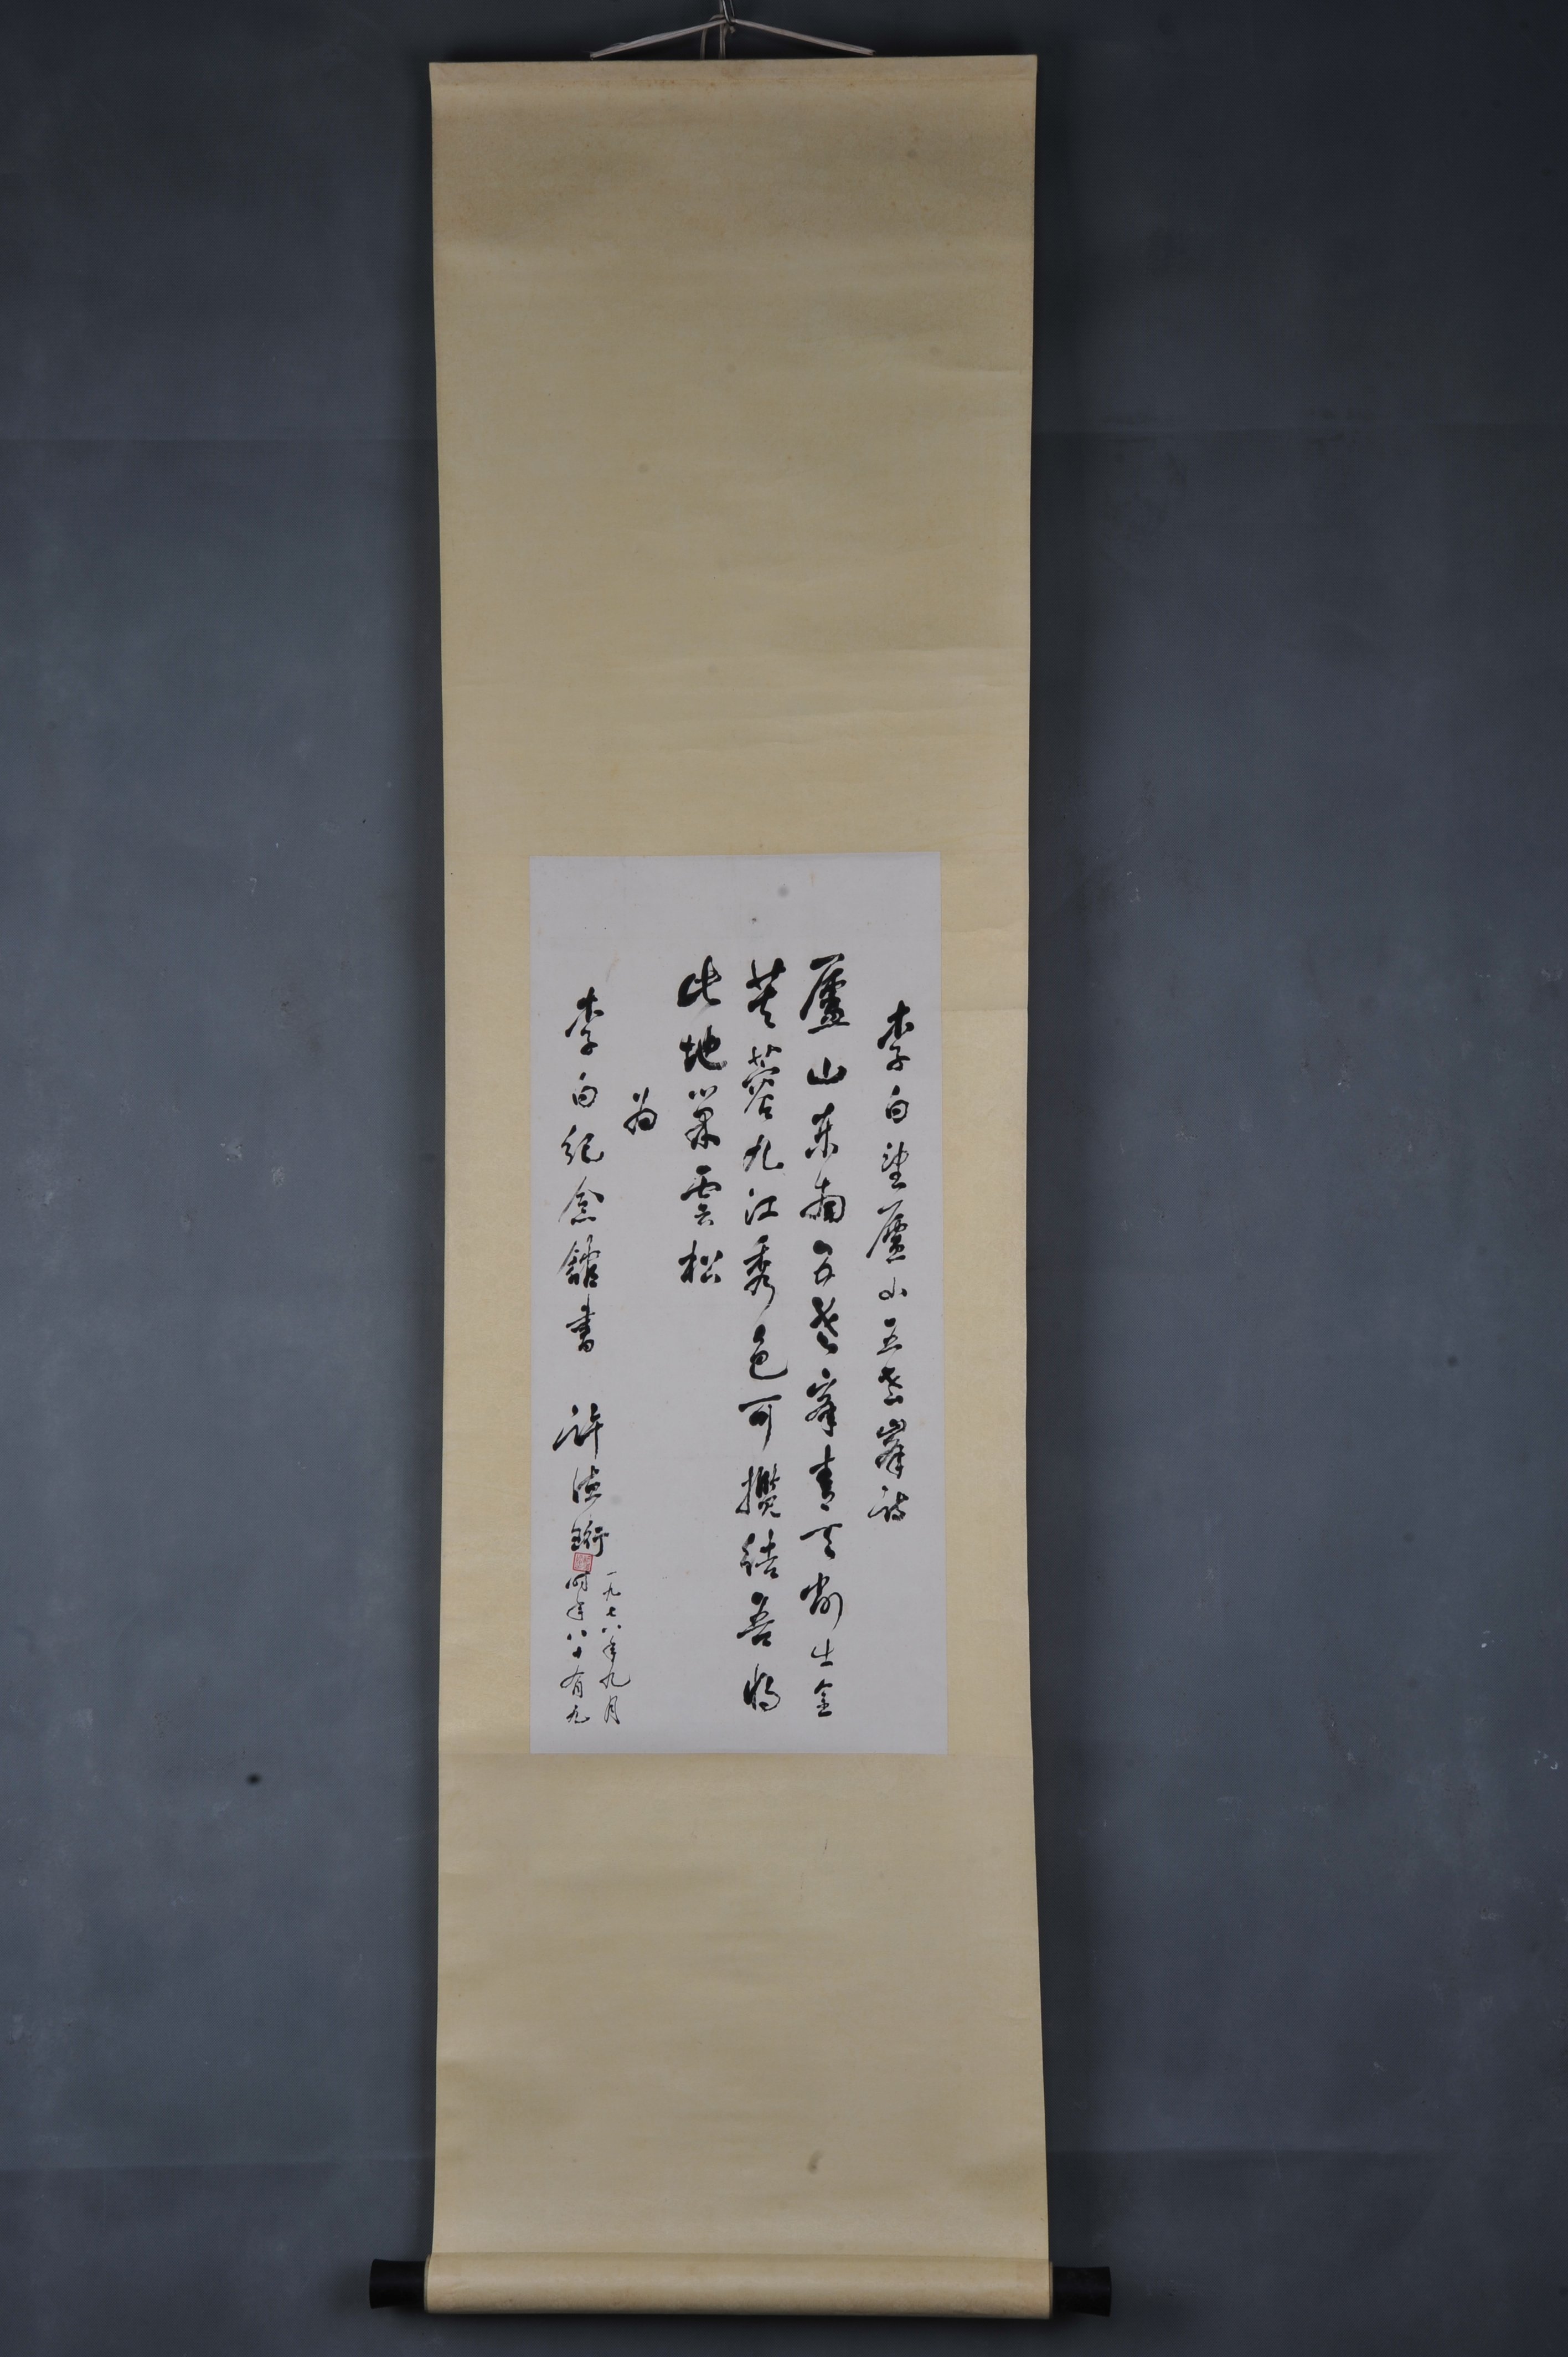 李白望廬山五老峯詩
廬山东南五老峯青天削出金
芙蓉九江秀色可攬結吾将
此地巢雲松
为
李白紀念館書 許德珩
一九七八年九月
时年八十有九